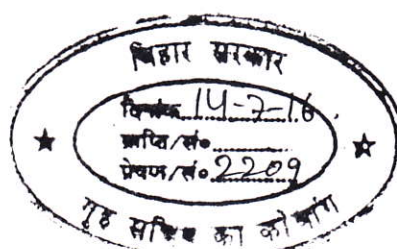 बिहार सरकार
दिनांक 14-7-16.
प्राप्ति/सं०
प्रेषण/सं० 2209
गृह सचिव का कोषांग